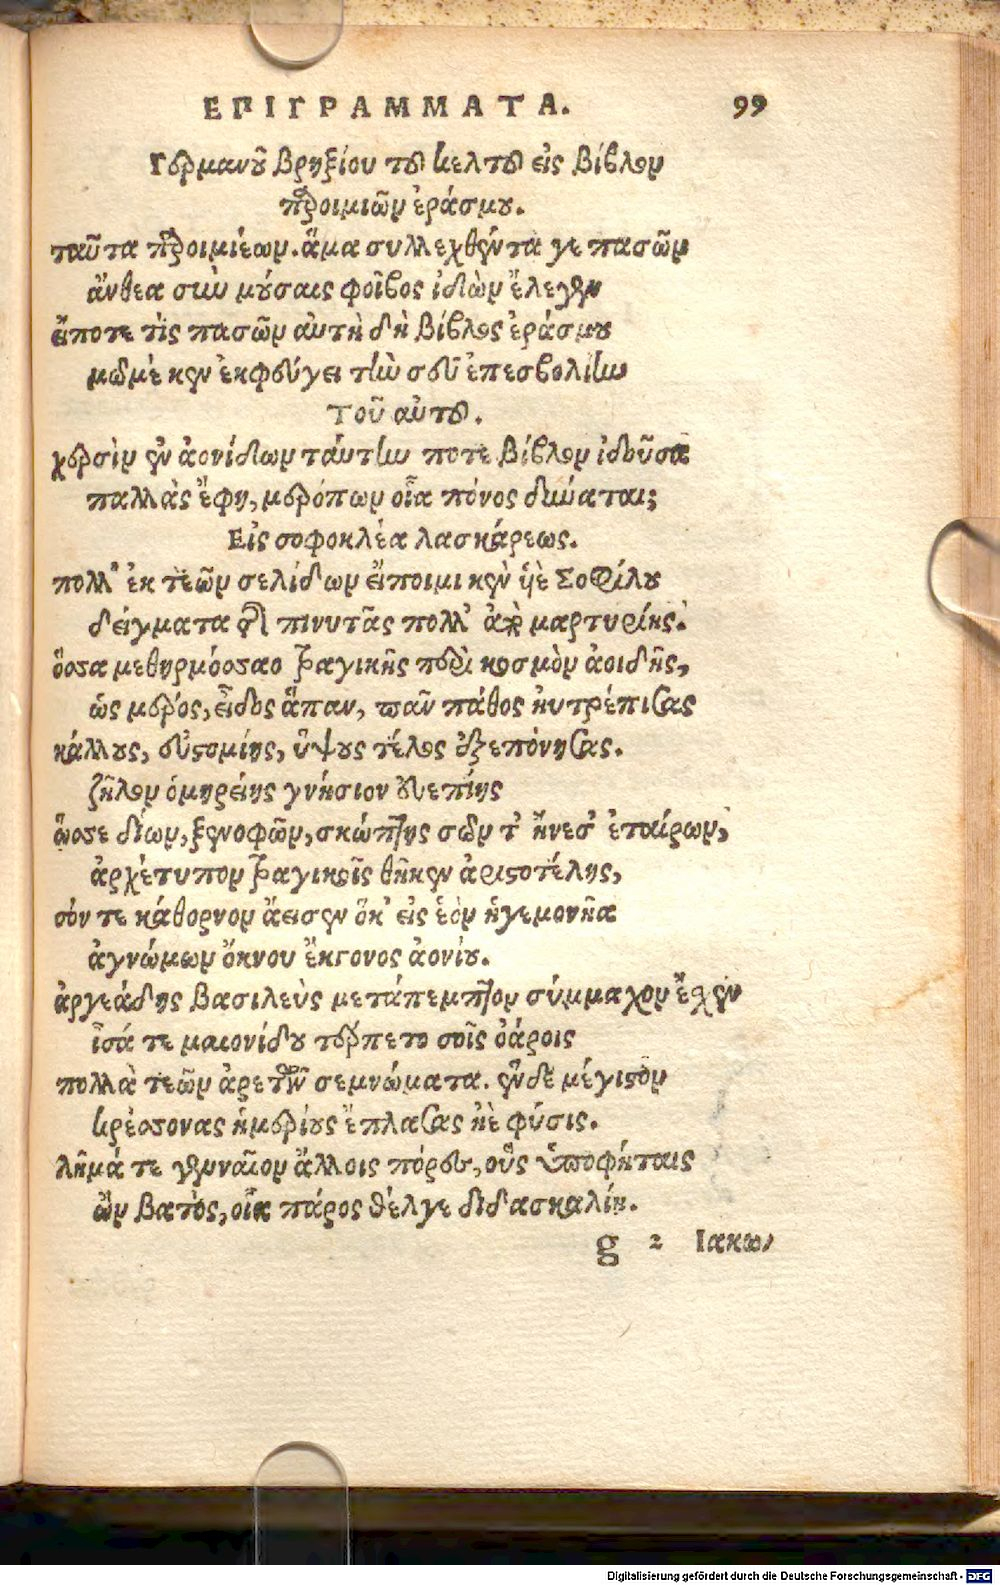 ΕΠΙΓΡΑΜΜΑΤΑ. 99
Γερμανοῦ βρηξίου τοῦ κελτοῦ εἰς βίβλον
προοιμιῶν ἐράσμου.
ταῦτα προοιμιέων. ἅμα συλλεχθέντα γε πασῶν
ἄνθεα σὺν μούσαις φοῖβος ἰδὼν ἔλεγεν
εἴποτε τὶς πασῶν αὐτὴ δὴ βίβλος ἐράσμου
μώμε κεν ἐκφεύγει τὴν σεῦ ἐπεσβολίην
Τοῦ αὐτοῦ.
χερσὶν ἐν ἀονίδων ταύτην ποτε βίβλον ἰδοῦσα
παλλὰς ἔφη, μερόπων οἷα πόνος δύναται;
Εἰς σοφοκλέα λασκάρεως.
πολλ' ἐκ τεῶν σελίδων εἴποιμι κεν ἠὲ Σοφίλου
δείγματα πινυτᾶς πολλ' μαρτυρίης.
ὅσσα μεθηρμόσσαο τραγικῆς περὶ κοσμὸν ἀοιδῆς,
ὡς μερός, εἶδος ἅπαν, πᾶν πάθος ηὐτρέπισας
κάλλους, εὐστομίης, ὕψους τέλος ἐξεπόνησας.
ζῆλον ὁμηρείης γνήσιον εὐεπίης
ὥσσε δίων, ξενοφῶν, σκώπτης σῶν τ' ἤνεσ' ἑταίρων,
ἀρχέτυπον τραγικοῖς θῆκεν ἀριστοτέλης,
σόν τε κάθορνον ἄεισεν ὅκ' εἰς ἑὸν ἡγεμονῆα
ἀγνώμων ὄκνου ἔκγονος ἀονίου.
ἀργεάδης βασιλεὺς μετάπεμπτον σύμμαχον ἔχεν
ἶσά τε μαιονίδου τέρπετο σοῖς ὀάροις
πολλὰ τεῶν ἀρετῶν σεμνώματα. ἓν δὲ μέγιστον
κρέσσονας ἡμερίους ἔπλασας ἠὲ φύσις.
λῆμά τε γενναῖον ἄλλοις πόρες, οὓς ὑποφήταις
ὢν βατὸς, οἷα πάρος θέλγε διδασκαλίη.
g 2 Ιακω/
Digitalisierung gefördert durch die Deutsche Forschungsgemeinschaft - DFG